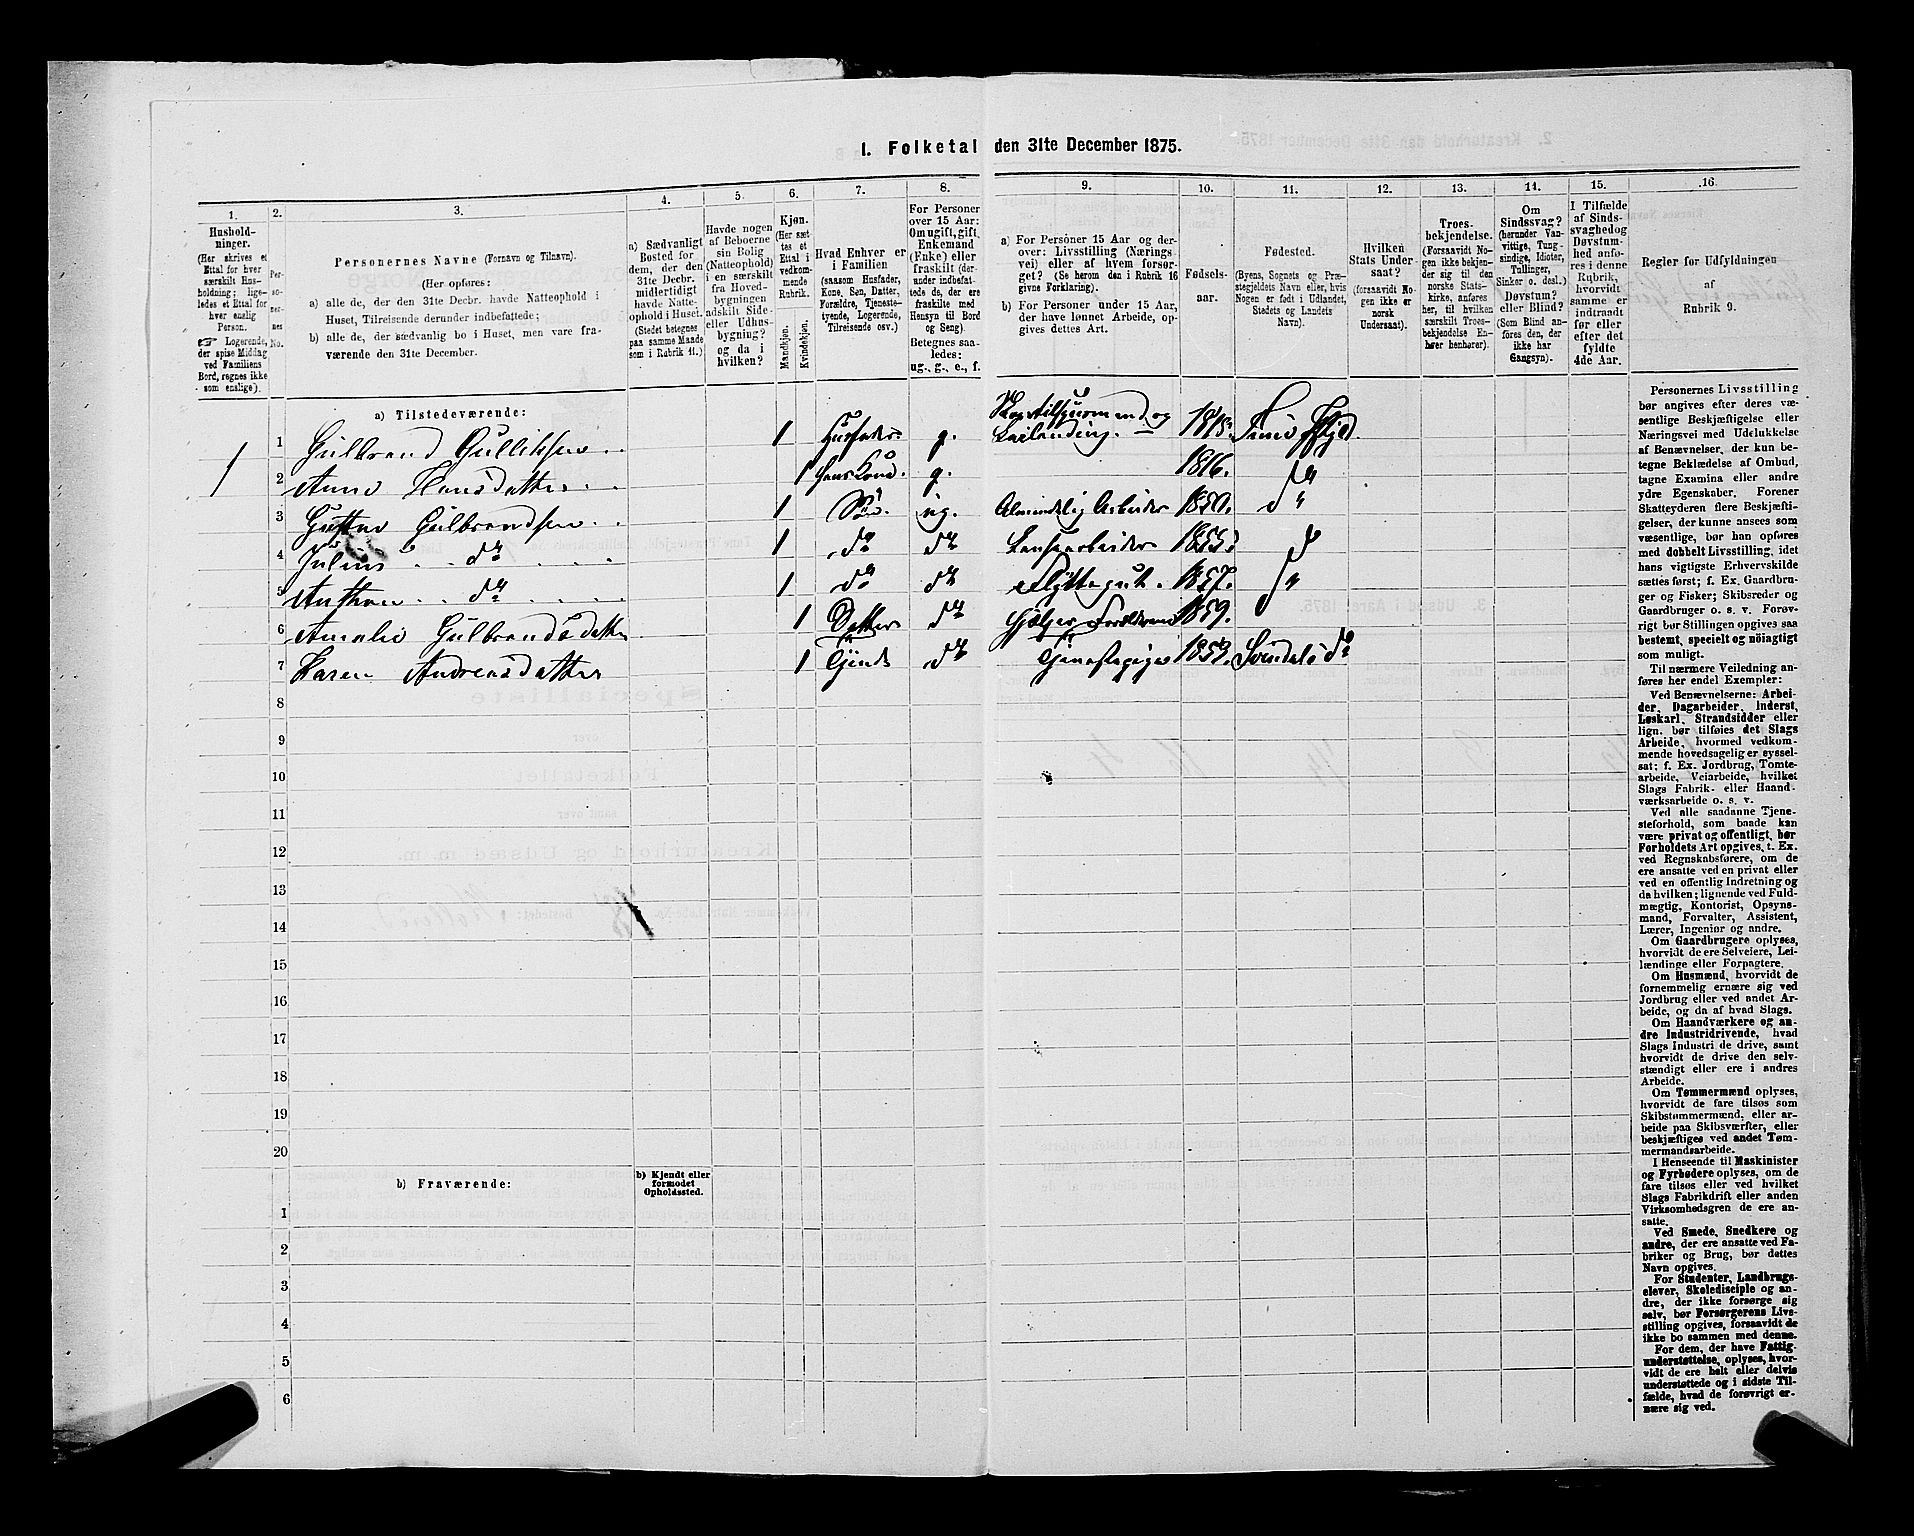 I. Folketal den 31te December 1875.
1.
2.
3.
4.
5.
6.
7.
8.
9.
10.
11.
12.
13.
14.
15.
16.
Hushold-
ninger.
(Her skrives et
Ettal for hver
særskilt Hus-
holdning; lige-
ledes et Ettal for
hver enslig
Person.
☞ Logerende,
der spise Middag
ved Familiens
Bord, regnes ikke
som enslige).
Per-
so-
ner-
nes
No.
Personernes Navne (Fornavn og Tilnavn).
(Her opføres:
a) alle de, der den 31te Decbr. havde Natteophold i
Huset, Tilreisende derunder indbefattede;
b) alle de, der sædvanlig bo i Huset, men vare fra-
værende den 31te December.
a) Sædvanligt
Bosted for
dem, der den
31te Decbr.
midlertidigt
havde Natte-
ophold i Huset.
(Stedet betegnes
paa samme Maade
som i Rubrik 11.)
Havde nogen
af Beboerne
sin Bolig
(Natteophold)
i en særskilt
fra Hoved-
bygningen
adskilt Side-
eller Udhus-
bygning?
og da i
hvilken?
Kjøn.
(Her sæt-
tes et
Ettal i
vedkom-
mende
Rubrik.
Mandkjøn.
Kvindekjøn.
Hvad Enhver er
i Familien
(saasom Husfader,
Kone, Søn, Datter,
Forældre, Tjeneste-
tyende, Logerende,
Tilreisende osv.)
For Personer
over 15 Aar:
Om ugift, gift,
Enkemand
(Enke) eller
fraskilt (der-
under indbefat-
tede de, der ere
fraskilte med
Hensyn til Bord
og Seng).
Betegnes saa-
ledes:
ug., g., e., f.
a) For Personer 15 Aar og der-
over: Livsstilling (Nærings-
vei) eller af hvem forsør-
get? (Se herom den i Rubrik 16
givne Forklaring).
b) For Personer under 15 Aar,
der have lønnet Arbeide, op-
gives dettes Art.
Fødsels-
aar.
Fødested.
(Byens, Sognets og Præ-
stegjeldets Navn eller, hvis
Nogen er født i Udlandet,
Stedets og Landets
Navn).
Hvilken
Stats Under-
saat?
(forsaavidt No-
gen ikke er
norsk
Undersaat).
Troes-
bekjendelse.
(Forsaavidt No-
gen ikke bekjen-
der sig til den
norske Stats-
kirke, anføres
her, til hvilken
særskilt Troes-
bekjendelse En-
hver henhører).
Om
Sindssvag?
(herunder Van-
vittige, Tung-
sindige, Idioter,
Tullinger,
Sinker o. desl.)
Døvstum?
eller Blind?
(Som Blind an-
føres den, der
ikke har
Gangsyn).
I Tilfælde
af Sinds-
svaghed og
Døvstum-
hed anfø-
res i denne
Rubrik,
hvorvidt
samme er
indtraadt
før eller
efter det
fyldte
4de Aar.
Regler for Udfyldningen
af
Rubrik 9.
a) Tilstedeværende:
1 Gulbrand Gulliksen 1 Husfader g. og Leilænding. 1818. Tune Pgjld
1 2 Anne Hansdatter 1 hans Kone. g. 1816. d°
3 Gustav Gulbrandsen 1 Søn. ug. Almindelig Arbeider 1850. d°
4 Julius d° 1 d° d° 1855. d°
5 Anthon d° 1 d° d° 1857. d°
6 Amalie Gulbrandsdatter 1 Datter d° hjælper Forældrene 1859.
7 Karen Andreasdatter 1 Tjende d° Tjenestepige 1853. d°
8
9
10
11
12
13
14
15
16
17
18
19
20
b) Fraværende:
b) Kjendt eller
formodet
Opholdssted.
1
2
3
4
5
6
Personernes Livsstilling
bør angives efter deres væ-
sentlige Beskjæftigelse eller
Næringsvei med Udelukkelse
af Benævnelser, der kun be-
tegne Beklædelse af Ombud,
tagne Examina eller andre
ydre Egenskaber. Forener
Skatteyderen flere Beskjæfti-
gelser, der kunne ansees som
væsentlige, bør han opføres
med dobbelt Livsstilling, idet
hans vigtigste Erhvervskilde
sættes først; f. Ex. Gaardbru-
ger og Fisker; Skibsreder og
Gaardbruger o. s. v. Forøv-
rigt bør Stillingen opgives saa
bestemt, specielt og nöiagtigt
som muligt.
Til nærmere Veiledning an-
føres her endel Exempler:
Ved Benævnelserne: Arbei-
der, Dagarbeider, Inderst,
Løskarl, Strandsidder eller
lign. bør tilføies det Slags
Arbeide, hvormed vedkom-
mende hovedsagelig er syssel-
sat; f. Ex. Jordbrug, Tomte-
arbeide, Veiarbeide, hvilket
Slags Fabrik- eller Haand-
værksarbeide o. s. v.
Ved alle saadanne Tjene-
steforhold, som baade kan
være privat og offentligt, bør
Forholdets Art opgives, t. Ex.
ved Regnskabsførere, om de
ere ansatte ved en privat eller
ved en offentlig Indretning og
da hvilken; lignende ved Fuld-
mægtig, Kontorist, Opsyns-
mand, Forvalter, Assistent,
Lærer, Ingeniør og andre.
Om Gaardbrugere oplyses,
hvorvidt de ere Selveiere, Lei-
lændinge eller Forpagtere.
Om Husmænd, hvorvidt de
fornemmelig ernære sig ved
Jordbrug eller ved andet Ar-
beide, og da af hvad Slags.
Om Haandværkere og an-
dre Industridrivende, hvad
Slags Industri de drive, samt
hvorvidt de drive den selv-
stændigt eller ere i andres
Arbeide.
Om Tømmermænd oplyses,
hvorvidt de fare tilsøs som
Skibstømmermænd, eller ar-
beide paa Skibsværfter, eller
beskjæftiges ved andet Tøm-
mermandsarbeide.
I Henseende til Maskinister
og Fyrbødere oplyses, om de
fare tilsøs eller ved hvilket
Slags Fabrikdrift eller anden
Virksomhedsgren de ere an-
satte.
Ved Smede, Snedkere og
andre, der ere ansatte ved Fa-
briker og Brug, bør dettes
Navn opgives.
For Studenter, Landbrugs-
elever, Skoledisciple og an-
dre, der ikke forsørge sig
selv, bør Forsørgerens Livs-
stilling opgives, forsaavidt de
ikke bo sammen med denne.
For dem, der have Fattig-
understøttelse, oplyses, hvor-
vidt de ere helt eller delvis
understøttede og i sidste Til-
fælde, hvad de forøvrigt er-
nære sig ved.